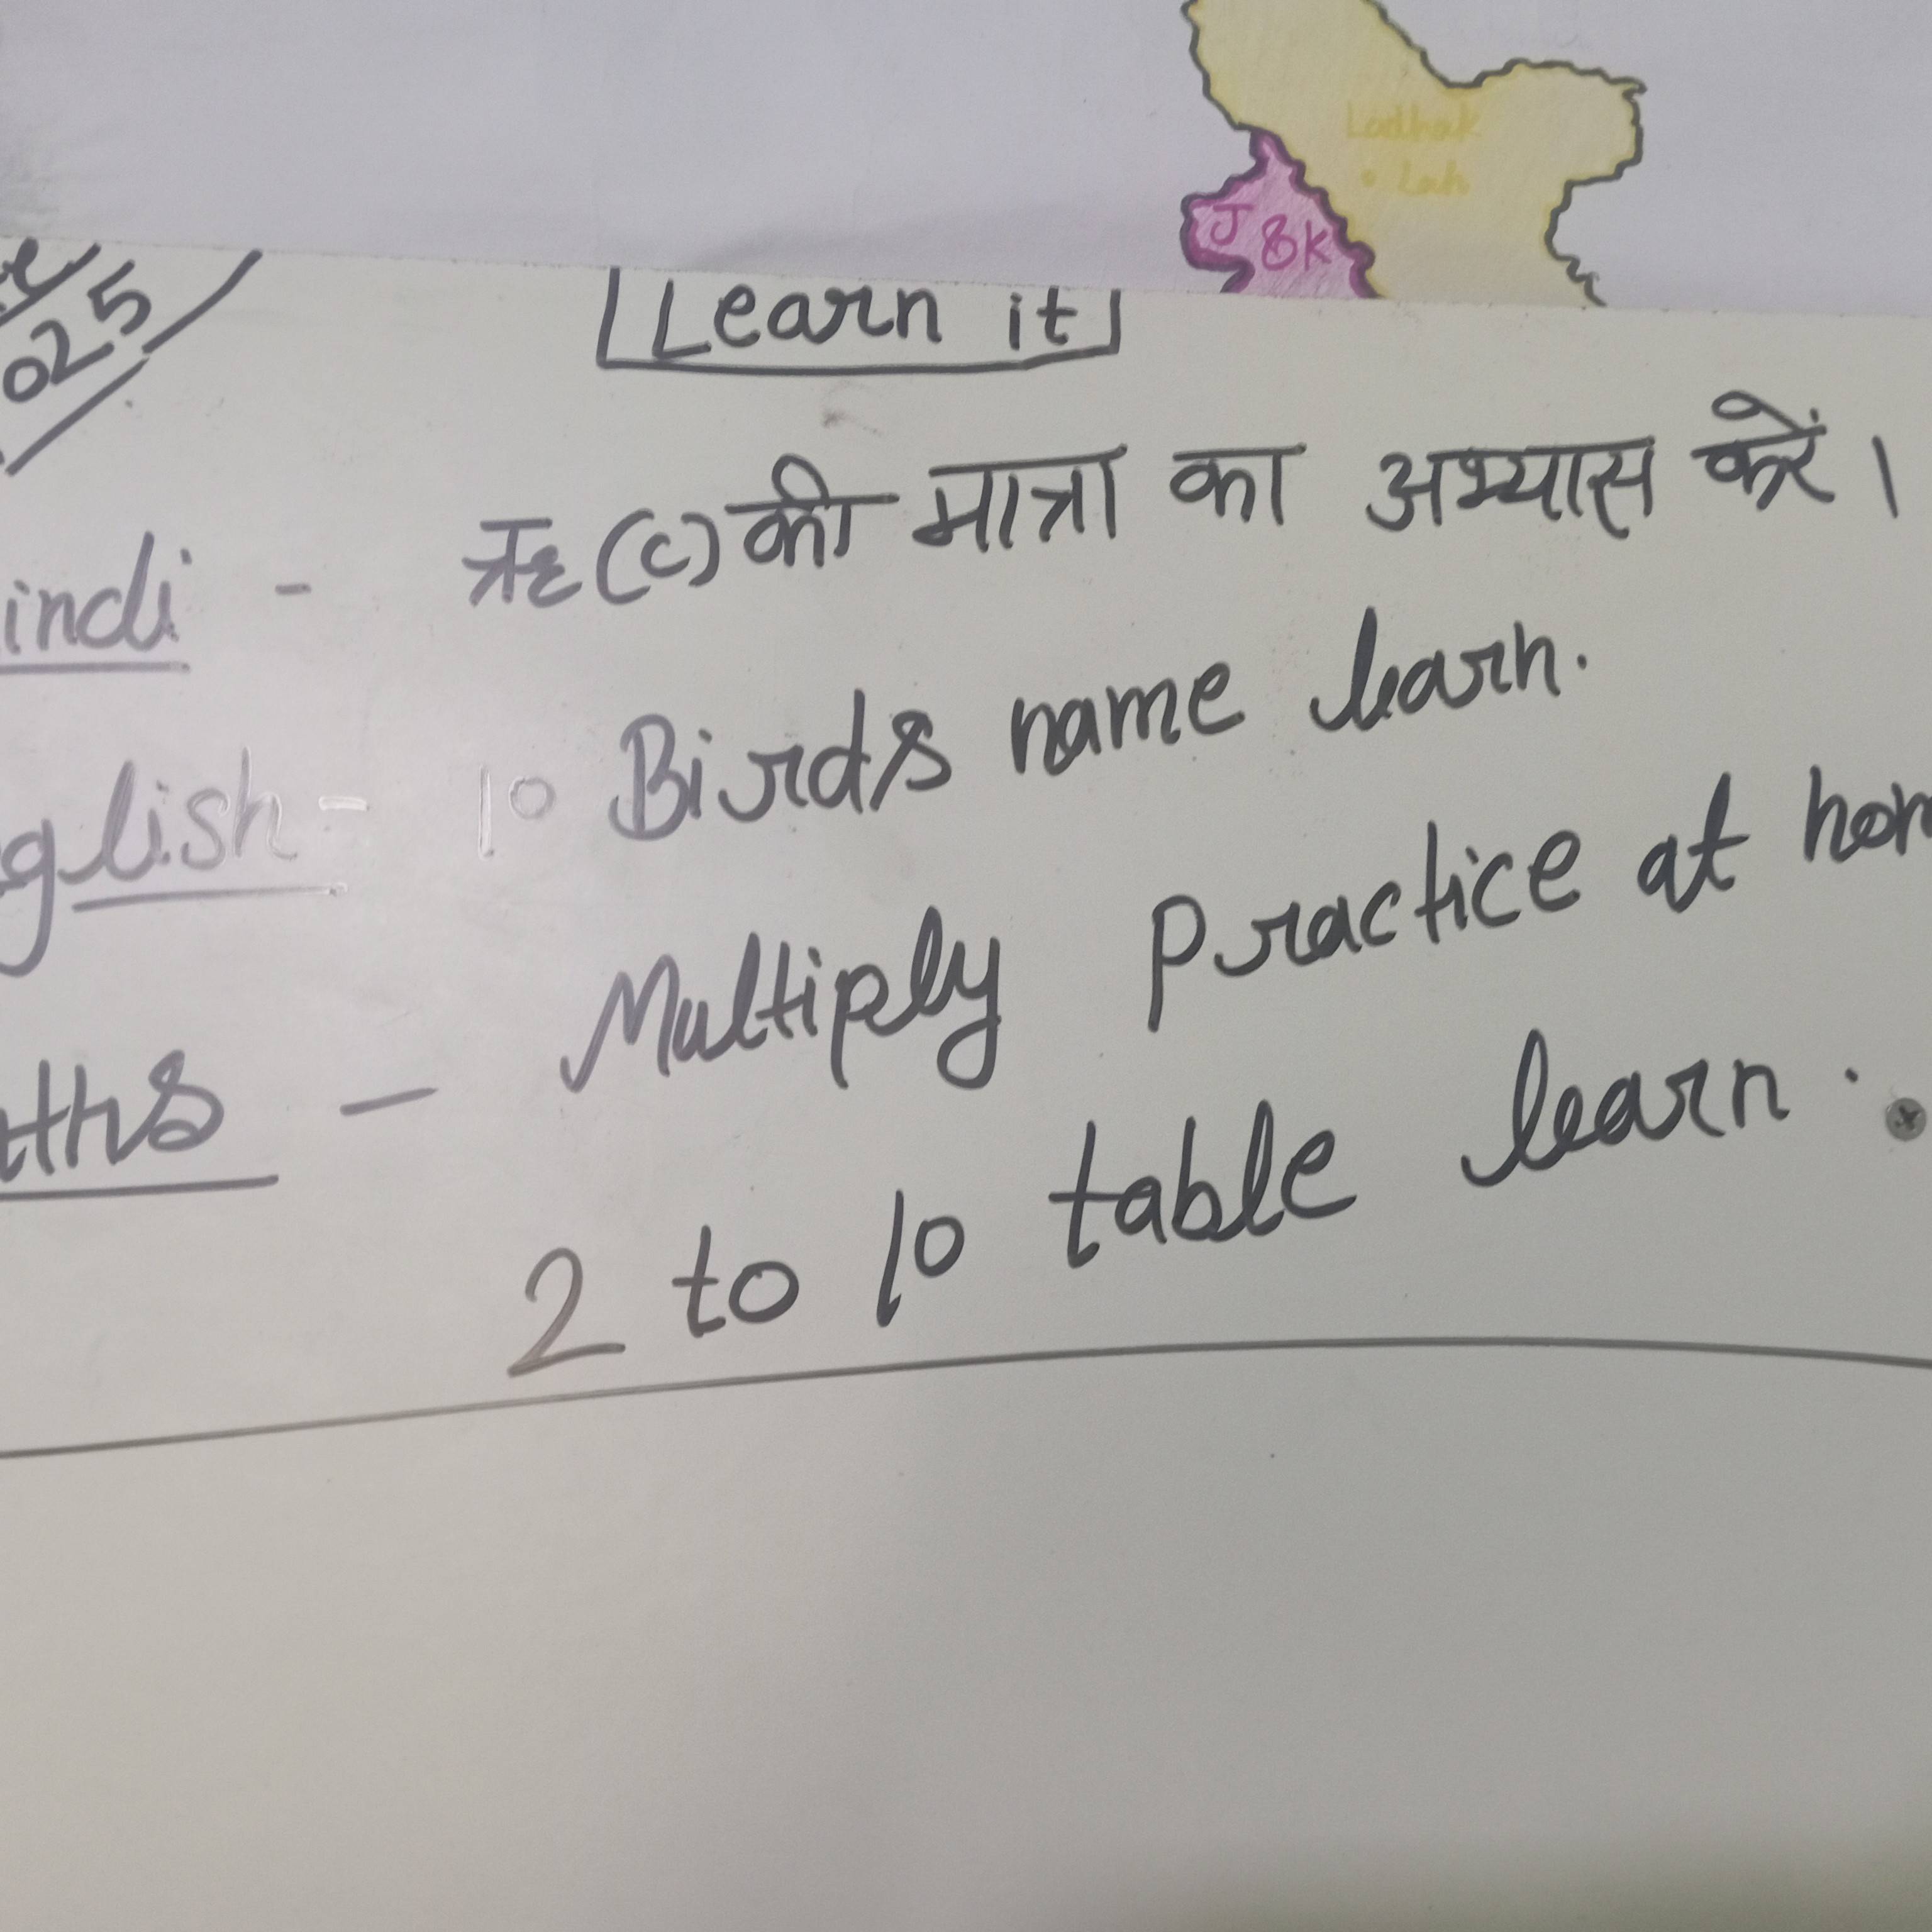 Ladhak
Leh
J&K
025
Learn it
indi - ऋ (c) की मात्रा का अभ्यास करें।
glish - 10 Birds name learn.
ths - Multiply Practice at hom
2 to 10 table learn.